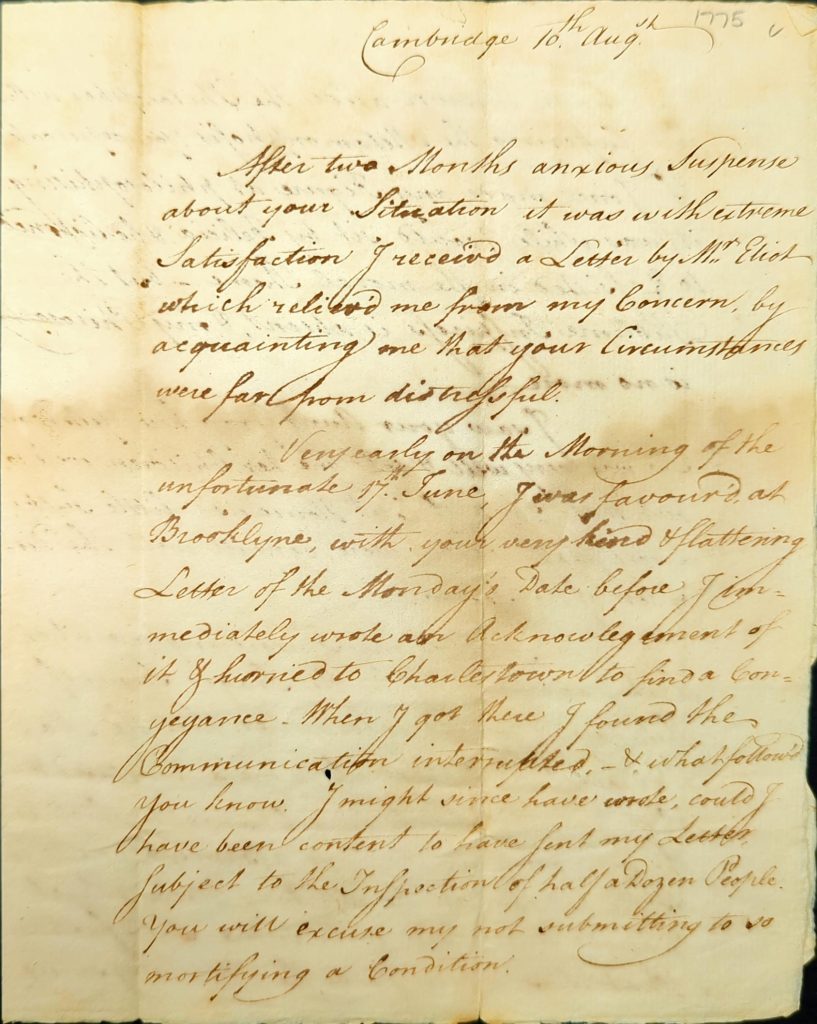 1775
Cambridge 10th Augst
After two Months anxious Suspense
about your Situation it was with extreme
Satisfaction I receiv'd a Letter by Mr. Eliot
which reliev'd me from my Concern, by
acquainting me that your Circumstances
were far from distressful.
Very early on the Morning of the
unfortunate 17th. June, I was favour'd, at
Brooklyne, with your very kind & flattering
Letter of the Monday's Date before. I im=
mediately wrote an Acknowlegement of
it & hurried to Charlestown to find a Con=
veyance - When I got there I found the
Communication interrupted, - & what follow'd
you know. I might since have wrote, could I
have been content to have sent my Letter,
subject to the Inspection of half a Dozen People.
You will excuse my not submitting to so
mortifying a Condition.